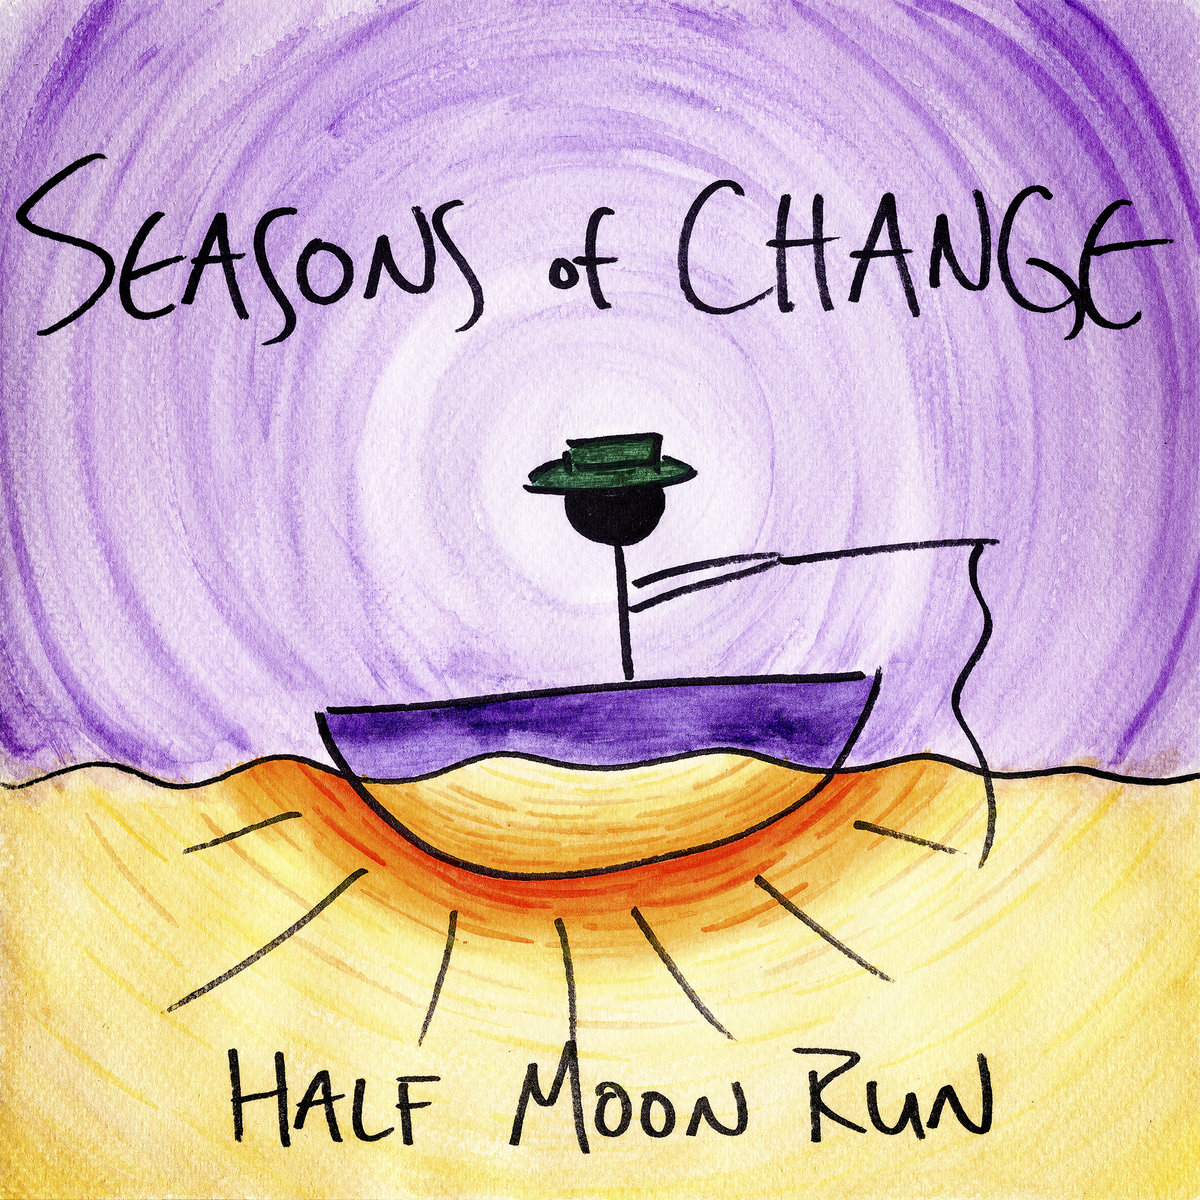 SEASONS of CHANGE
HALF MOON RUN